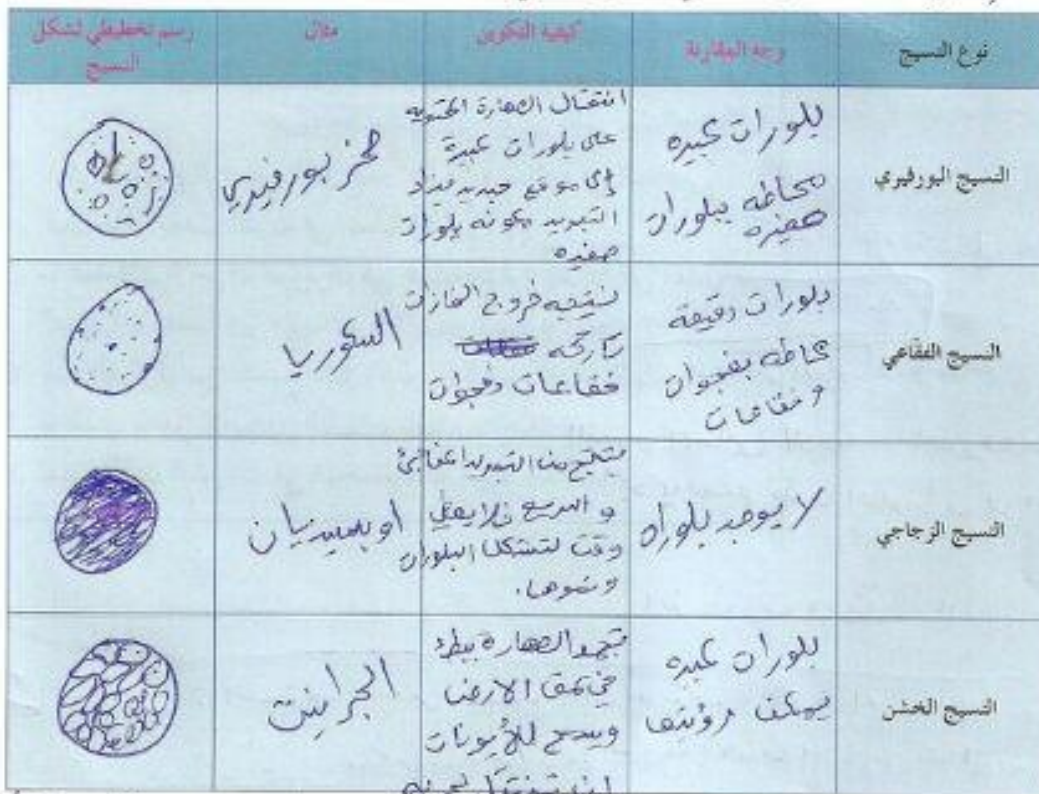 نوع النسيج
وجه المقارنة
كيفية التكوين
مثال
رسم تخطيطي لشكل
النسيج
النسيج البورفيري
بلورات كبيره
محاطه ببلورات
صغيره
انتقال الصهارة المحتويه
على بلورات كبيرة
إلى موقع جديد يزداد
التبريد مكونه بلورات
صغيره
صخر بورفيري
النسيج الفقاعي
بلورات دقيقه
محاطه بفجوات
وفقاعات
نتيجه خروج الغازات
تاركه
فقاعات وفجوات
السكوريا
النسيج الزجاجي
لا يوجد بلورات
ينتج من التبريد المفاجئ
و السريع فلا يعطي
وقت لتشكل البلورات
ونموها.
اوبسيديان
النسيج الخشن
بلورات كبيره
يمكن رؤيتها
تجمد الصهارة ببطء
في عمق الارض
ويسمح للأيونات
ان تنتقل
الجرانيت